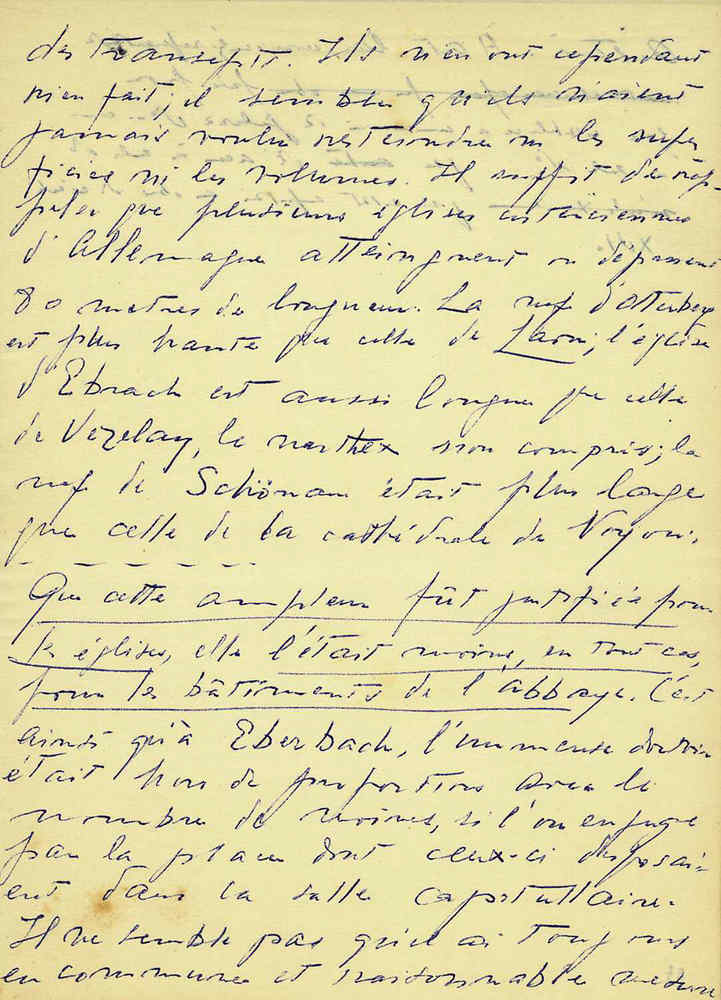 des transept. Ils n'en ont cependant
rien fait; il semble qu'ils n'aient
jamais voulu restreindre ni les super
ficies ni les volumes. Il suffit de rap-
peler que plusieurs églises cisterciennes
d'Allemagne atteignent ou dépassent
80 metres de longueur. La nef d'Otterberg
est plus haute que celle de Laon; l'église
d'Ebrach est aussi longue que celle
de Vézelay, le narthex non compris; la
nef de Schönau était plus large
que celle de la cathédrale de Noyon.
_ _ _ _ _ _ _
Que cette ampleur fût justifiée pour
les églises, elle l'était moins, en tout cas,
pour les bâtiments de l'abbaye. C'est
ainsi qu'à Eberbach, l'immense dortoir
était hors de proportions avec le
nombre de moines, si l'on en juge
par la place dont ceux-ci disposai-
ent dans la salle capitullaire.
Il ne semble pas qu'il ai toujours
en commune et raisonnable mesure